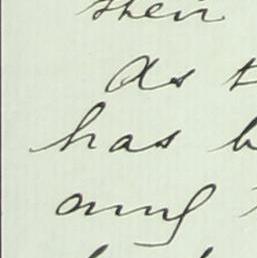 their
As t
has b
any